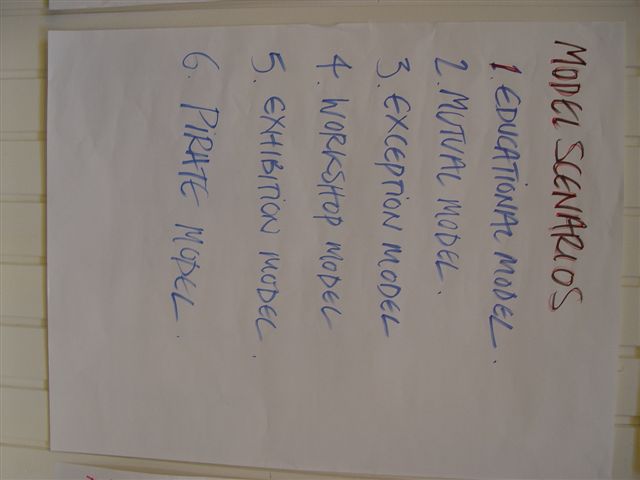 MODEL SCENARIOS
1. EDUCATIONAL MODEL.
2. MUTUAL MODEL.
3. EXCEPTION MODEL
4. WORKSHOP MODEL
5. EXHIBITION MODEL.
6. PIRATE MODEL.